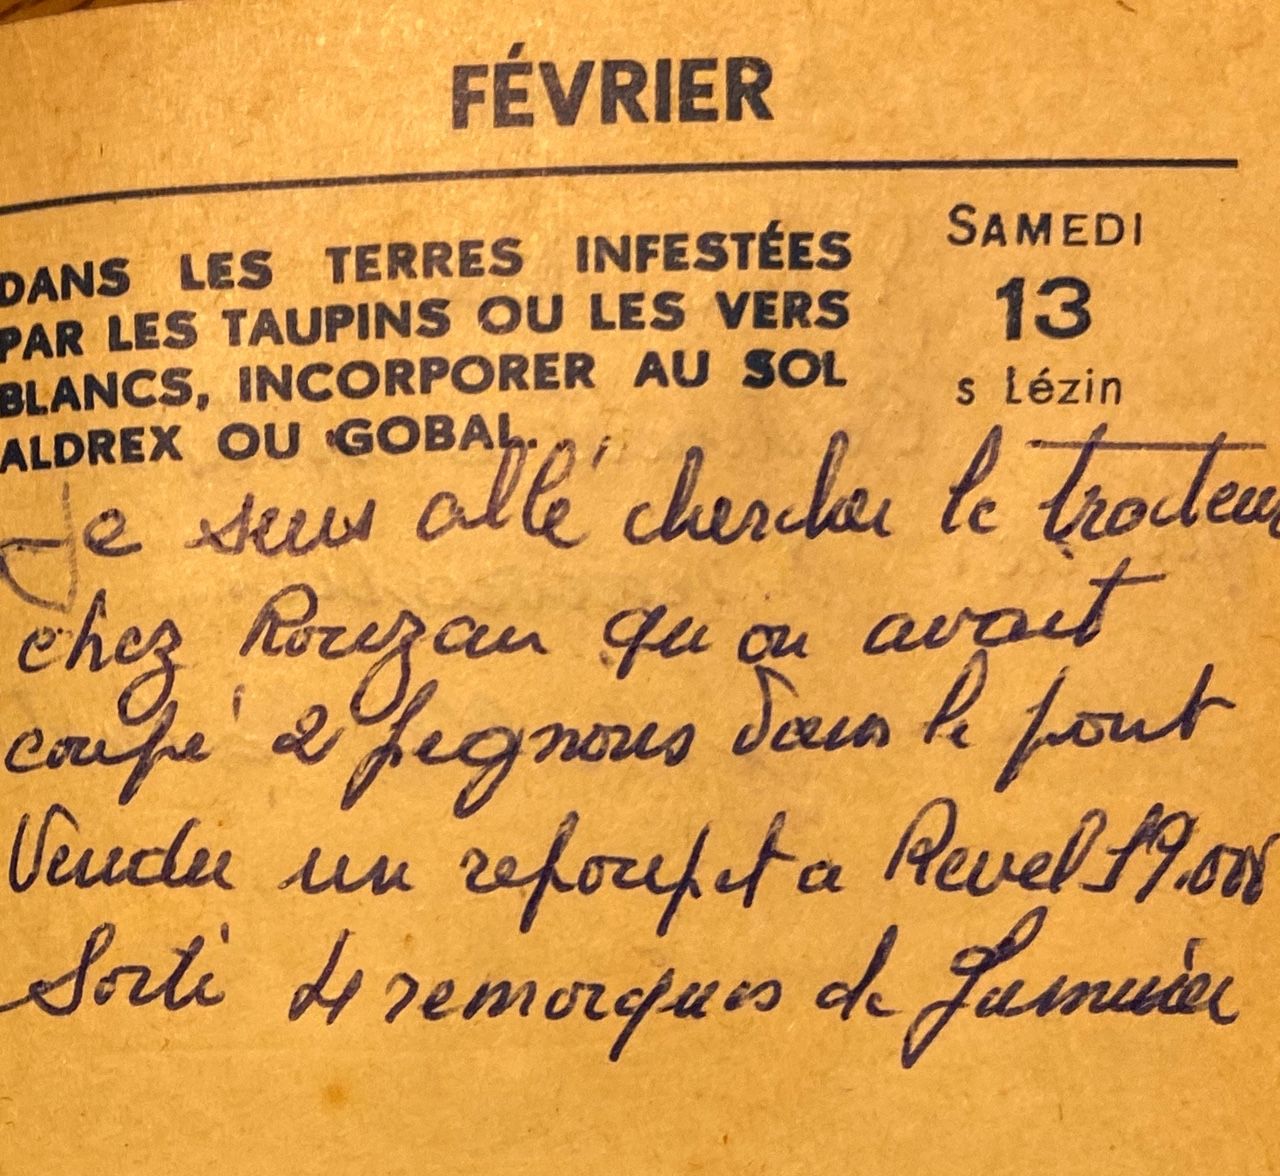 FÉVRIER
DANS LES TERRES INFESTÉES
PAR LES TAUPINS OU LES VERS
BLANCS, INCORPORER AU SOL
ALDREX OU GOBAL.
SAMEDI
13
s Lézin
Je suis allé chercher le tracteur
chez Rouzan qu on avait
coupé 2 pegnons dans le pont
Vendu un a Revel 19.000
Sorti 4 remorques de fumier